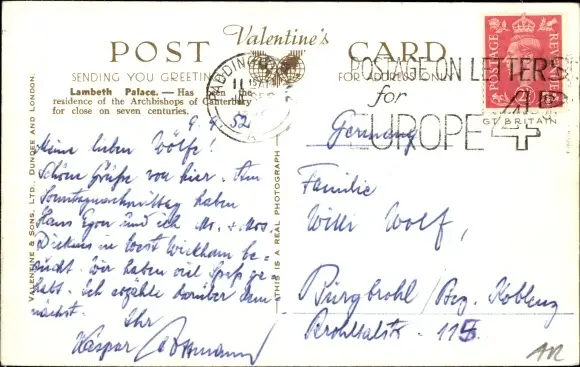 POST Valentine's CARD
SENDING YOU GREETINGS
FOR ADDRESS ONLY
Lambeth Palace. — Has been the
residence of the Archbishops of Canterbury
for close on seven centuries.
PADDINGTON
POSTAGE ON LETTERS
for
EUROPE 4D
POSTAGE REVENUE
GT BRITAIN
VALENTINE & SONS, LTD., DUNDEE AND LONDON.
THIS IS A REAL PHOTOGRAPH
9.9.52
Meine lieben Wölfe!
Schöne Grüße von hier. Am
Sonntagnachmittag haben
Hans Egon und ich Mr. + Mrs.
Dickins in West Wickham be-
sucht. Wir haben viel Spaß ge-
habt. Ich erzähle darüber dem-
nächst.
Ihr
Kaspar
Germany
Familie
Willi Wolf,
Burgbrohl / Bez. Koblenz
Brohltalstr. 115
AR